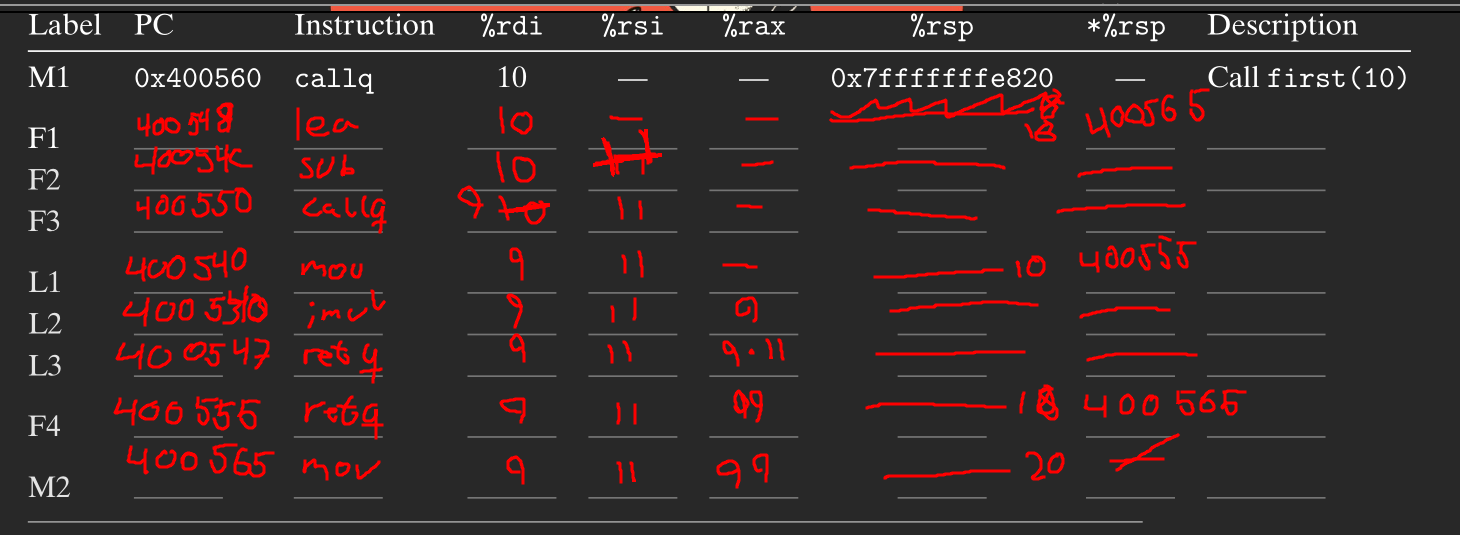 Label PC Instruction %rdi %rsi %rax %rsp *%rsp Description
M1 0x400560 callq 10 — — 0x7fffffffe820 — Call first(10)
F1 400548 lea 10 — — 18 400565
F2 40054c sub 10 —
F3 400550 callq 9 10 11 —
L1 400540 mov 9 11 — 10 400555
L2 imul 9 11 9
L3 400547 retq 9 11 9·11
F4 400555 retq 9 11 99 18 400565
M2 400565 mov 9 11 99 20